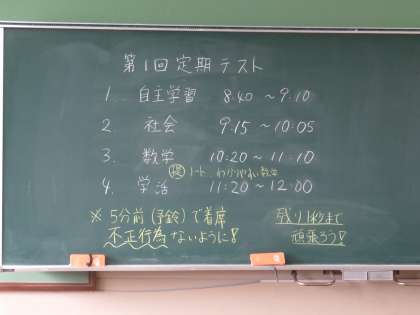 第1回定期テスト
1. 自主学習 8:40 ～ 9:10
2. 社会 9:15 ～ 10:05
3. 数学 10:20 ～ 11:10
提 ノート、わかりやすい数学
4. 学活 11:20 ～ 12:00
※ 5分前 (予鈴) で着席
不正行為ないように!
残り1秒まで
頑張ろう!